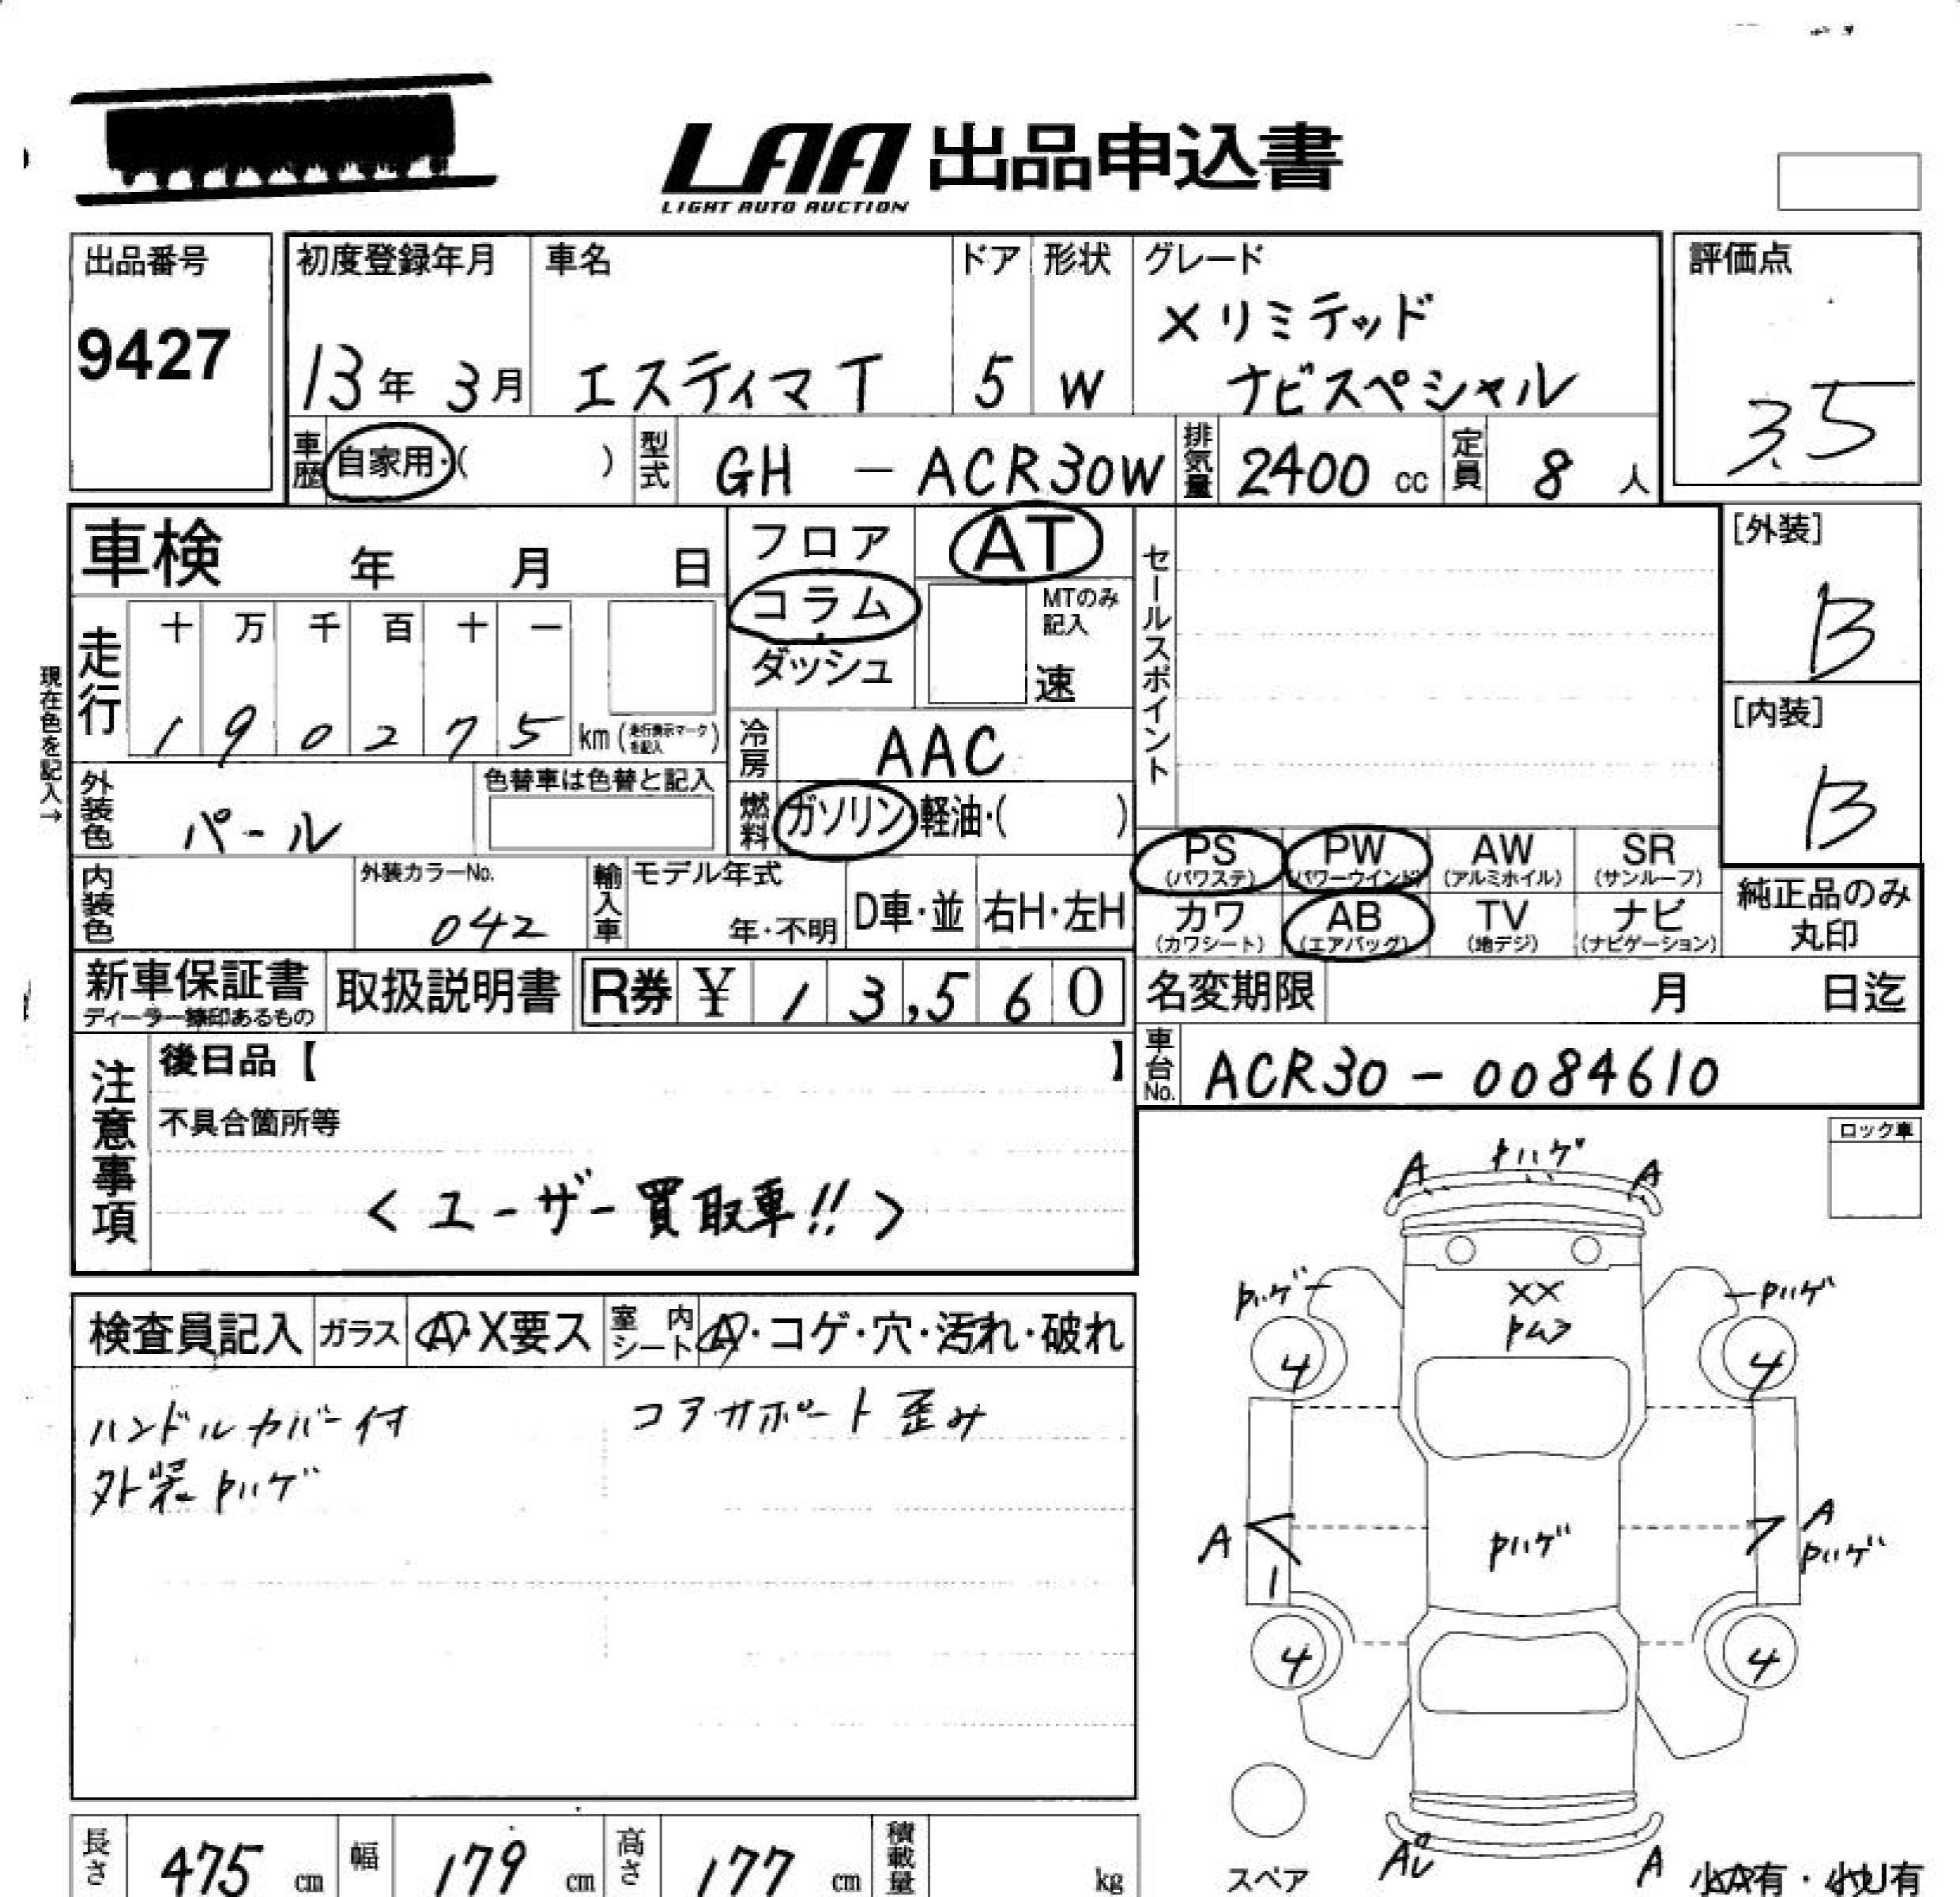 LAA 出品申込書
LIGHT AUTO AUCTION
出品番号
9427
初度登録年月
13年 3月
車名
エスティマT
ドア
5
形状
W
グレード
Xリミテッド
ナビスペシャル
評価点
3.5
車歴 自家用・( )
型式 GH - ACR30W
排気量 2400 cc
定員 8 人
車検 年 月 日
フロア
コラム
ダッシュ
AT
MTのみ
記入
速
セールスポイント
[外装]
B
[内装]
B
現在色を記入→
走行
十 万 千 百 十 一
1 9 0 2 7 5 km (走行表示マークを記入)
冷房 AAC
燃料 ガソリン・軽油・( )
外装色 パール
色替車は色替と記入
内装色
外装カラーNo.
042
輸入車 モデル年式
年・不明
D車・並
右H・左H
PS
(パワステ)
PW
(パワーウインド)
AW
(アルミホイル)
SR
(サンルーフ)
カワ
(カワシート)
AB
(エアバッグ)
TV
(地デジ)
ナビ
(ナビゲーション)
純正品のみ
丸印
新車保証書
ディーラー捺印あるもの
取扱説明書
R券 ¥ 13,560
名変期限 月 日迄
車台No. ACR30-0084610
注意事項
後日品【 】
不具合箇所等
<ユーザー買取車!!>
ロック車
検査員記入
ガラス
A・X要ス
室内シート
A・コゲ・穴・汚れ・破れ
ハンドルカバー付
コアサポート歪み
外装Pハゲ
A Pハゲ A
Pハゲ
Pハゲ
XX
Pムラ
4
4
A
1
Pハゲ
A
Pハゲ
4
4
スペア
A
小A有・小U有
長さ 475 cm
幅 179 cm
高さ 177 cm
積載量 kg